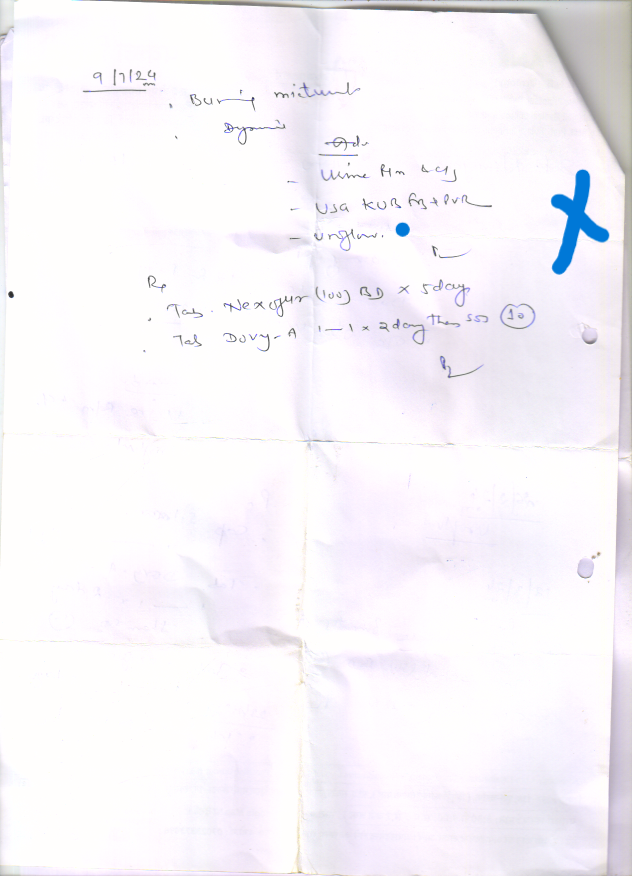 9/7/24
. Burning mictural
.
Adv
- Urine R/m & c/s
- USG KUB FB + PVR
- Uroflow.
Rx
. Tab. (100) BD x 5day
. Tab Dovy-A 1—1 x 2day then SOS (10)